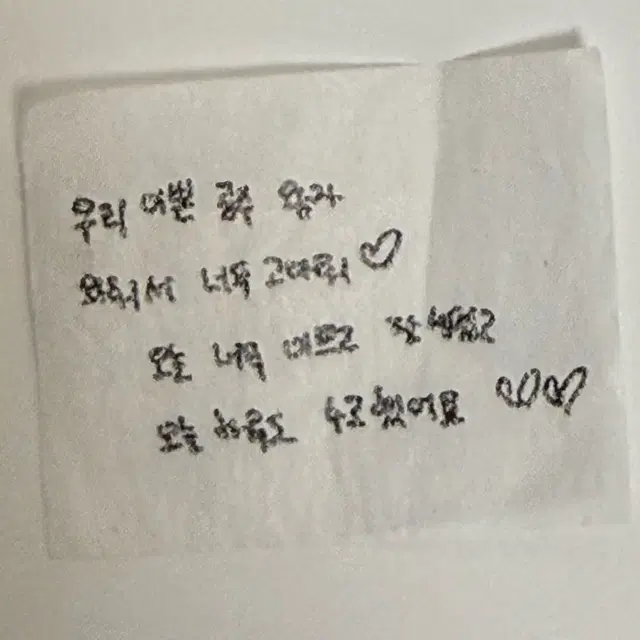 우리 이쁜 공주 왕자
와줘서 너무 고마워 ♡
오늘 너무 이쁘고 잘생겼고
오늘 하루도 수고했어요 ♡♡